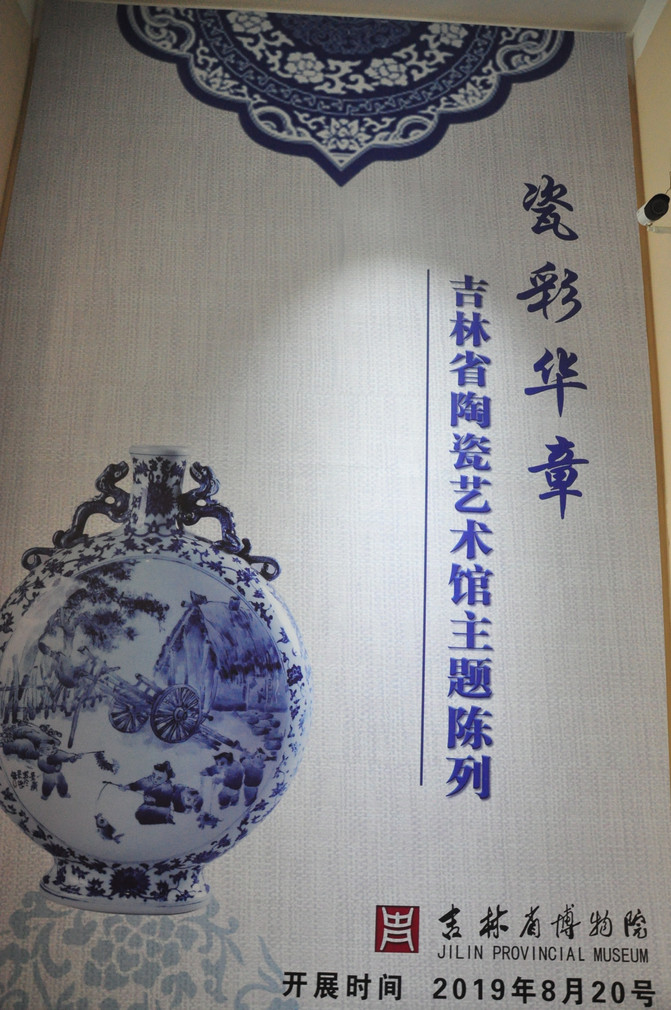 瓷彩华章
吉林省陶瓷艺术馆主题陈列
吉林省博物院
JILIN PROVINCIAL MUSEUM
开展时间 2019年8月20号